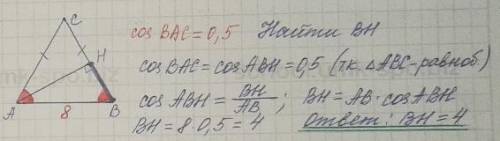 C
H
A
8
B
cos BAC = 0,5 Найти BH
cos BAC = cos ABH = 0,5 (тк. △ABC-равноб)
cos ABH = BH/AB ; BH = AB · cos ABH
BH = 8 · 0,5 = 4 Ответ: BH = 4